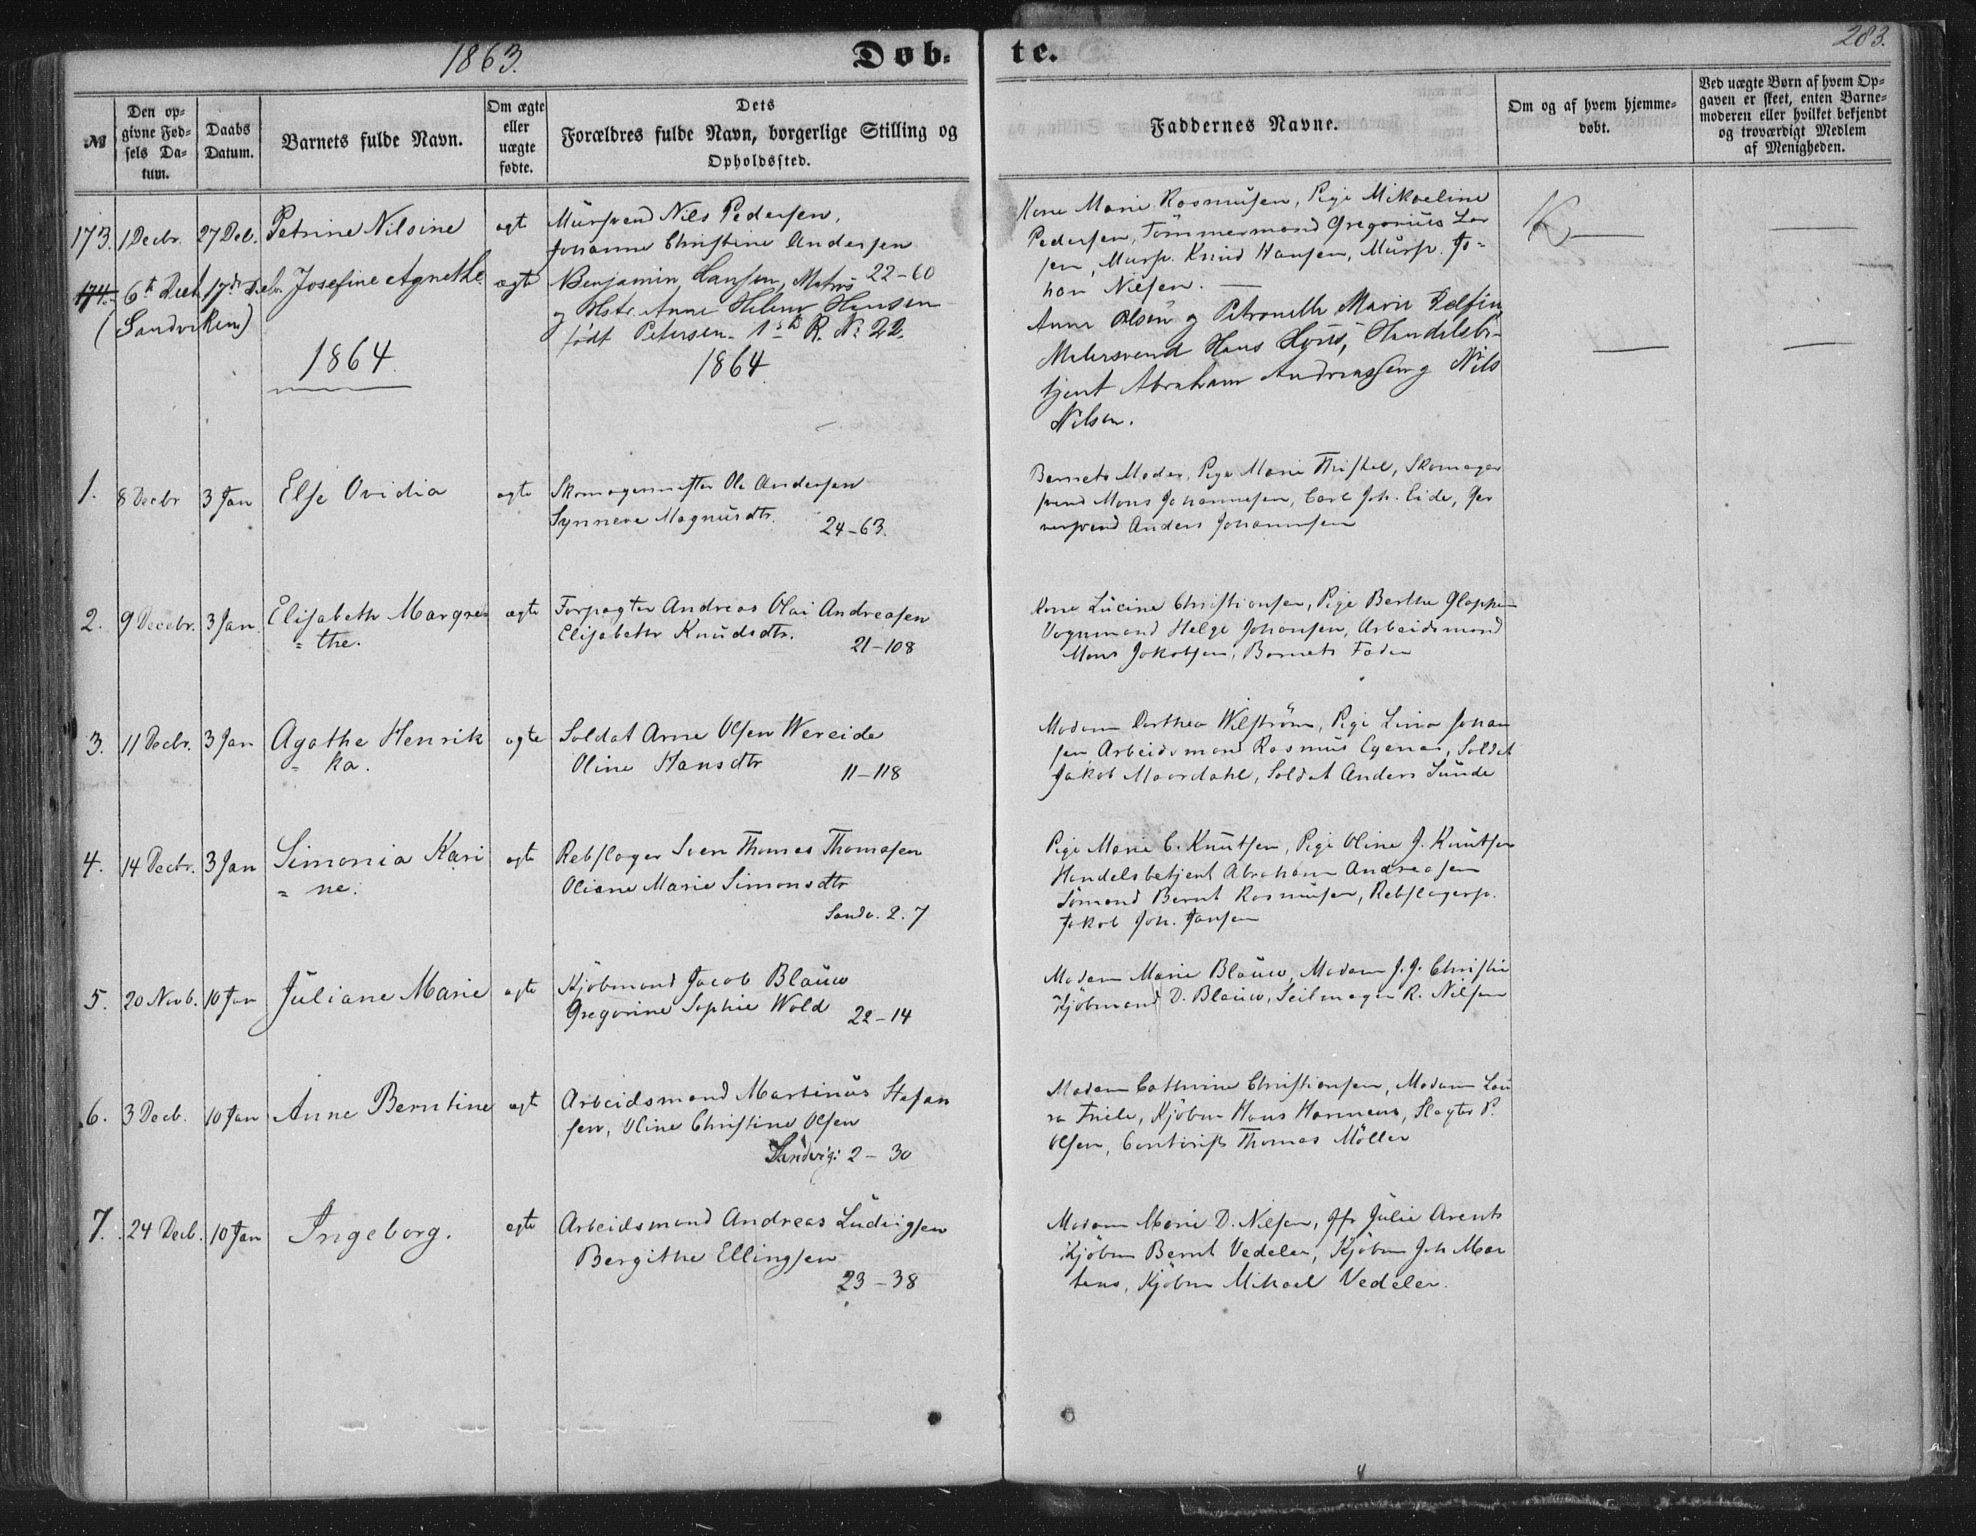 1863.
Døb-
te.
283.
№
Den op-
givne Fød-
sels Da-
tum.
Daabs
Datum.
Barnets fulde Navn.
Om ægte
eller
uægte
fødte.
Dets
Forældres fulde Navn, borgerlige Stilling og
Opholdssted.
Faddernes Navne.
Om og af hvem hjemme-
døbt.
Ved uægte Børn af hvem Op-
gaven er skeet, enten Barne-
moderen eller hvilket bekjendt
og troværdigt Medlem
af Menigheden.
173. 1 Decbr. 27 Deb. Petrine Nilsine ægt Mursvend Nils Pedersen,
Johanne Christine Andersen
22-60
Kone Marie Rasmusen, Pige Mikaeline
Pedersen, Tømmermand Gregorius Lar
sen, Mursv. Knud Hansen, Mursv. Jo-
han Nielsen.
174. 6te Decb. 17de Decbr. Josefine Agnethe ægte Benjamin Hansen, Matros
(Sandviken) og Hstr. Anne Helene Hansen
født Petersen. 1ste R. No 22.
Anne Olsen og Petronelle Marie Delfin,
Malersvend Hans Høus, Handelsbe-
tjent Abraham Andreassen og Nils
Nilsen.
1864.
1864.
1. 8 Decbr 3 Jan Else Ovidia ægte Skomagermester Ole Andersen
Synneve Magnusdtr. 24-63.
Barnets Moder, Pige Marie Thistel, Skomager
svend Mons Johannesen, Carl Joh. Eide, Gar
versvend Anders Johannesen
2. 9 Decebr. 3 Jan Elisabeth Margre-
the. ægte Forpagter Andreas Olai Andreasen
Elisabeth Knudsdtr. 21-108
Kone Lucine Christiansen, Pige Berthe Gloppen
Vognmand Helge Johansen, Arbeidsmand
Mons Jakobsen, Barnets Fader
3. 11 Decbr. 3 Jan Agathe Henrik
ka. ægte Soldat Arne Olsen Wereide
Oline Hansdtr 11-118
Madam Dorthea Wilstrøm, Pige Lina Johan
sen Arbeidsmand Rasmus Egenes, Soldat
Jakob Maardahl, Soldat Anders Sunde
4. 14 Decbr. 3 Jan Simonia Kari
ne. ægte Rebslager Sven Thomas Thomasen
Oliane Marie Simonsdtr
Sandv. 2. 7
Pige Marie C. Knutsen, Pige Oline J. Knutsen
Handelsbetjent Abraham Andreasen
Sømand Bernt Rasmusen, Rebslagersv.
Jakob Joh. Jansen
5. 20 Novb. 10 Jan Juliane Marie ægte Kjøbmand Jacob Blauw
Gregorine Sophie Wold 22-14
Madam Marie Blauw, Madam J. J. Christie
Kjøbmand D. Blauw, Seilmager R. Nilsen
6. 3 Decb. 10 Jan Anne Berntine ægt Arbeidsmand Martinus Stefan
sen, Oline Christine Olsen
Sandvig: 2-30
Madam Cathrine Christiansen, Madam Lau
ra Friele, Kjøbm Hans Harmens, Slagter P.
Olsen, Contorist Thomas Møller
7. 24 Decb. 10 Jan Ingeborg. ægte Arbeidsmand Andreas Ludvigsen
Bergithe Ellingsen
23-38
Madam Marie D. Nilsen, Jfr Julie Arentz
Kjøbm Bernt Vedeler, Kjøbm Joh Mar
tens, Kjøbm Mikael Vedeler.